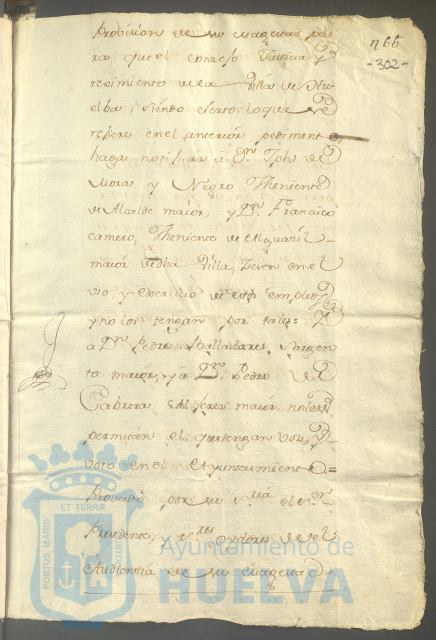 Provission de su magestad pa
ra que el conzejo Justicia y
reximiento de la Villa de Hu
elba, siendo cierto lo que se
refiere en el anterior pediment
hagan notificar a Dn. Jph de
Mora y Negro Theniente
de Alcalde maior, y Dn. Francisco
camero, Theniente de Alguazil
maior de dha Villa, zesen en el
uso y exercicio de sus empleos
y no los tengan por tales= y
a Dn. Pedro Valladares, sargen
to maior, y a Dn. Pedro de
Cabrera Alferez maior, no les
permitan el que tengan voz, y
voto en el Ayuntamiento=
Proveido por su sria el sr.
Presidente, y sres oydores de el
Audienzia de su magestad
nº 66
-302-
PORTUS MARIS
ET TERRÆ
CUSTODIA
Ayuntamiento de
HUELVA